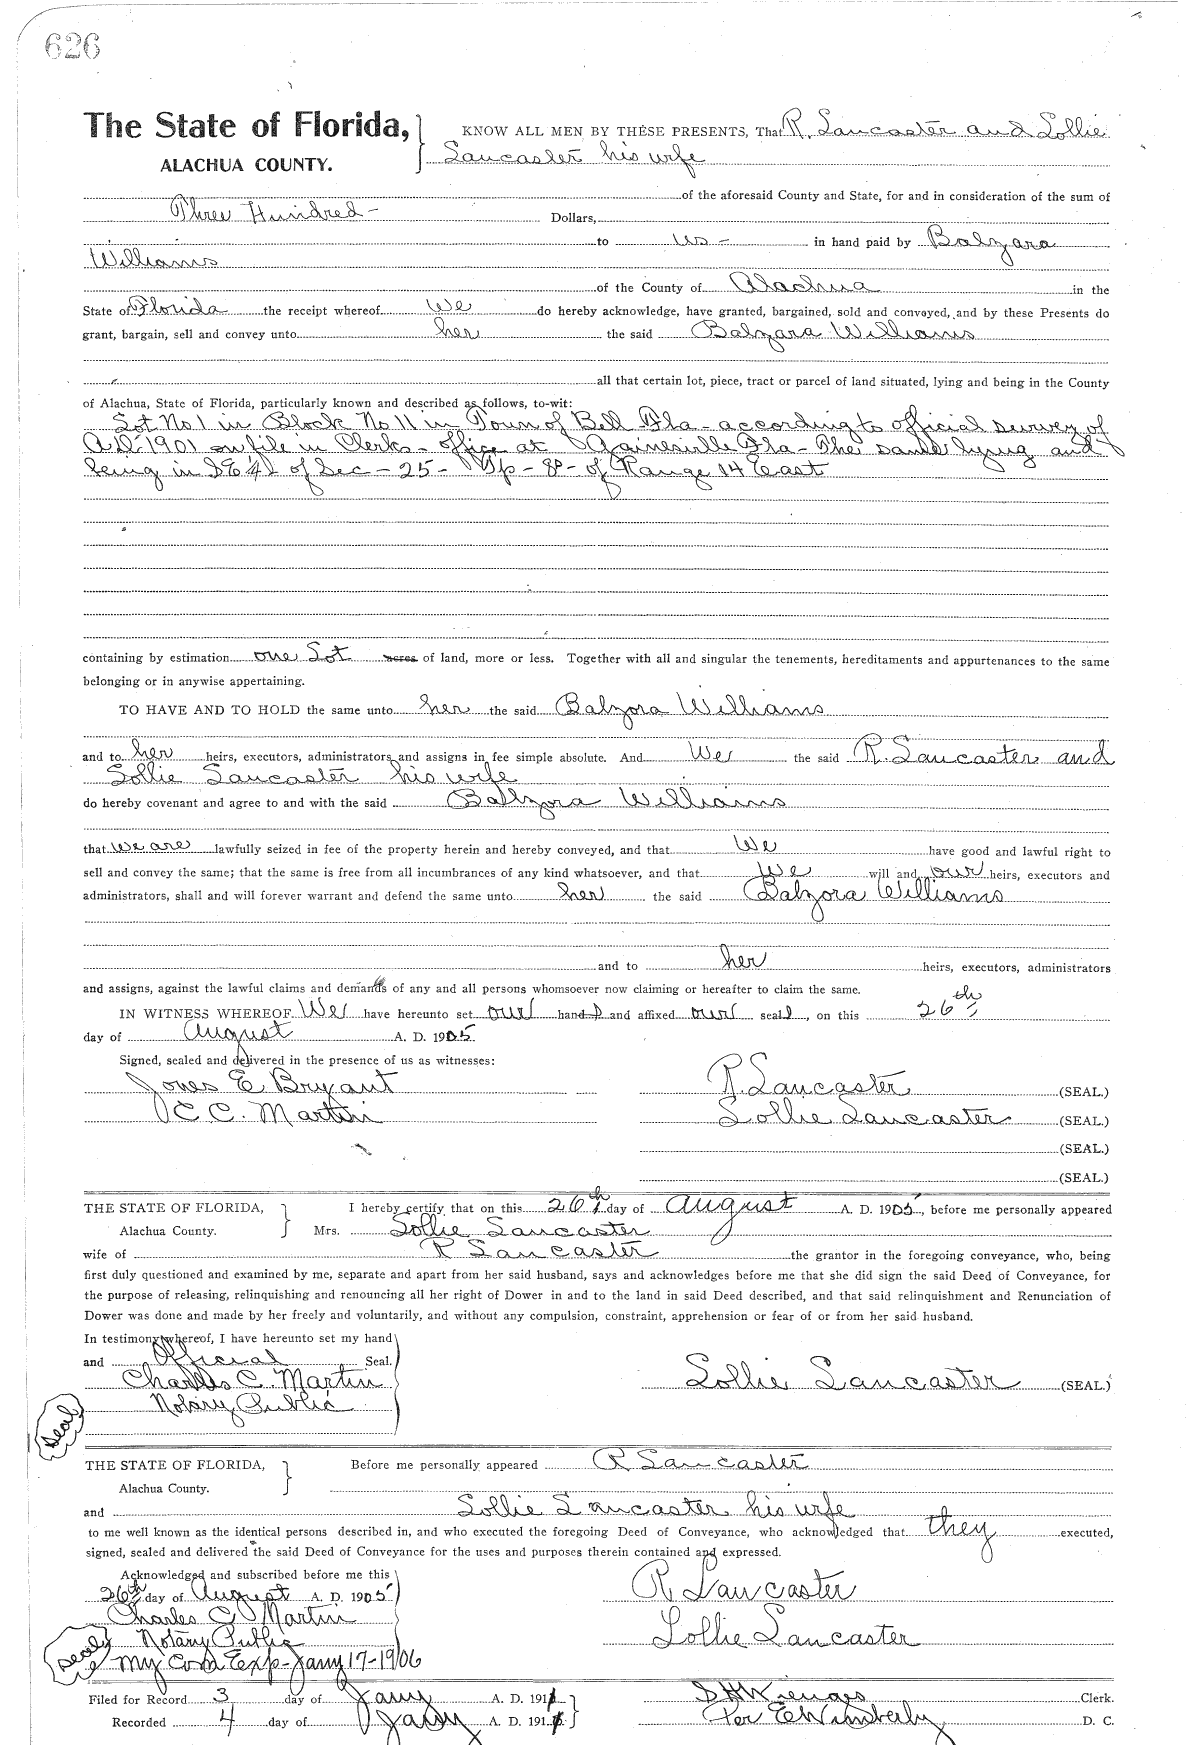 626
The State of Florida, KNOW ALL MEN BY THESE PRESENTS, That R. Lancaster and Lollie
ALACHUA COUNTY. Lancaster his wife
of the aforesaid County and State, for and in consideration of the sum of
Three Hundred - Dollars,
to us - in hand paid by Balzara
Williams
of the County of Alachua in the
State of Florida the receipt whereof We do hereby acknowledge, have granted, bargained, sold and conveyed, and by these Presents do
grant, bargain, sell and convey unto her the said Balzara Williams
all that certain lot, piece, tract or parcel of land situated, lying and being in the County
of Alachua, State of Florida, particularly known and described as follows, to-wit:
Lot No 1 in Block No 11 in Town of Bell Fla - according to official survey of
A.D. 1901 on file in Clerks - office at Gainesville Fla - The same lying and
being in S E 1/4 of Sec - 25 - Tp - 8 - of Range 14 East
containing by estimation one Lot acres of land, more or less. Together with all and singular the tenements, hereditaments and appurtenances to the same
belonging or in anywise appertaining.
TO HAVE AND TO HOLD the same unto her the said Balzora Williams
and to her heirs, executors, administrators and assigns in fee simple absolute. And We the said R. Lancaster and
Lollie Lancaster his wife
do hereby covenant and agree to and with the said Balzora Williams
that we are lawfully seized in fee of the property herein and hereby conveyed, and that We have good and lawful right to
sell and convey the same; that the same is free from all incumbrances of any kind whatsoever, and that We will and our heirs, executors and
administrators, shall and will forever warrant and defend the same unto her the said Balzora Williams
and to her heirs, executors, administrators
and assigns, against the lawful claims and demands of any and all persons whomsoever now claiming or hereafter to claim the same.
IN WITNESS WHEREOF We have hereunto set our hands and affixed our seals, on this 26th
day of August A. D. 1905
Signed, sealed and delivered in the presence of us as witnesses:
Jones E Bryant R. Lancaster (SEAL.)
C C. Martin Lollie Lancaster (SEAL.)
(SEAL.)
(SEAL.)
THE STATE OF FLORIDA, I hereby certify that on this 26th day of August A. D. 1905, before me personally appeared
Alachua County. Mrs. Lollie Lancaster
wife of R Lancaster the grantor in the foregoing conveyance, who, being
first duly questioned and examined by me, separate and apart from her said husband, says and acknowledges before me that she did sign the said Deed of Conveyance, for
the purpose of releasing, relinquishing and renouncing all her right of Dower in and to the land in said Deed described, and that said relinquishment and Renunciation of
Dower was done and made by her freely and voluntarily, and without any compulsion, constraint, apprehension or fear of or from her said husband.
In testimony whereof, I have hereunto set my hand
and Official Seal.
Charles C. Martin Lollie Lancaster (SEAL)
Notary Public
Seal
THE STATE OF FLORIDA, Before me personally appeared R Lancaster
Alachua County.
and Lollie Lancaster his wife
to me well known as the identical persons described in, and who executed the foregoing Deed of Conveyance, who acknowledged that they executed,
signed, sealed and delivered the said Deed of Conveyance for the uses and purposes therein contained and expressed.
Acknowledged and subscribed before me this
26th day of August A. D. 1905 R Lancaster
Charles C Martin
Notary Public Lollie Lancaster
Seal
My Com Exp - Jany 17 - 1906
Filed for Record 3 day of Jany A. D. 191 S H Wienges Clerk.
Recorded 4 day of Jany A. D. 191 Per E Wimberly D. C.